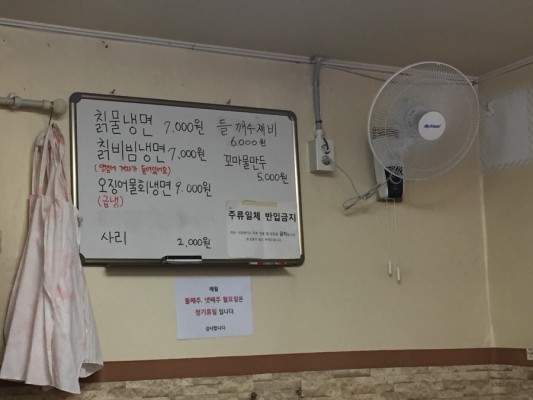 칡물냉면 7,000원
칡비빔냉면 7,000원
오징어물회냉면 9,000원
(급냉)
사리 2,000원
들깨수제비
6,000원
꼬마물만두
5,000원
주류일체 반입금지
매월
둘째주, 넷째주 월요일은
정기휴일 입니다.
감사합니다